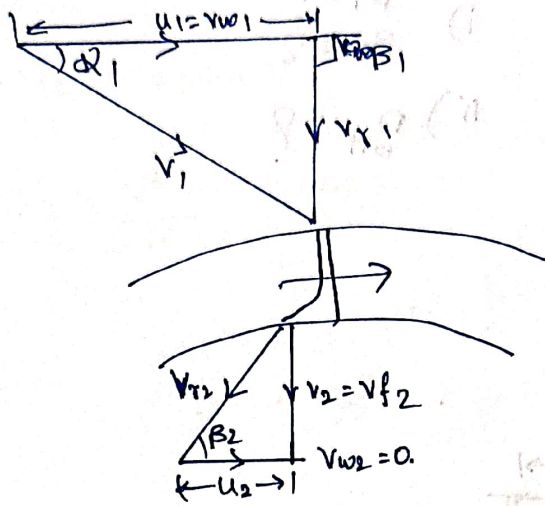 u₁=vw₁
α₁
β₁
Vr₁
V₁
Vr₂
V₂=Vf₂
β₂
Vw₂=0.
u₂